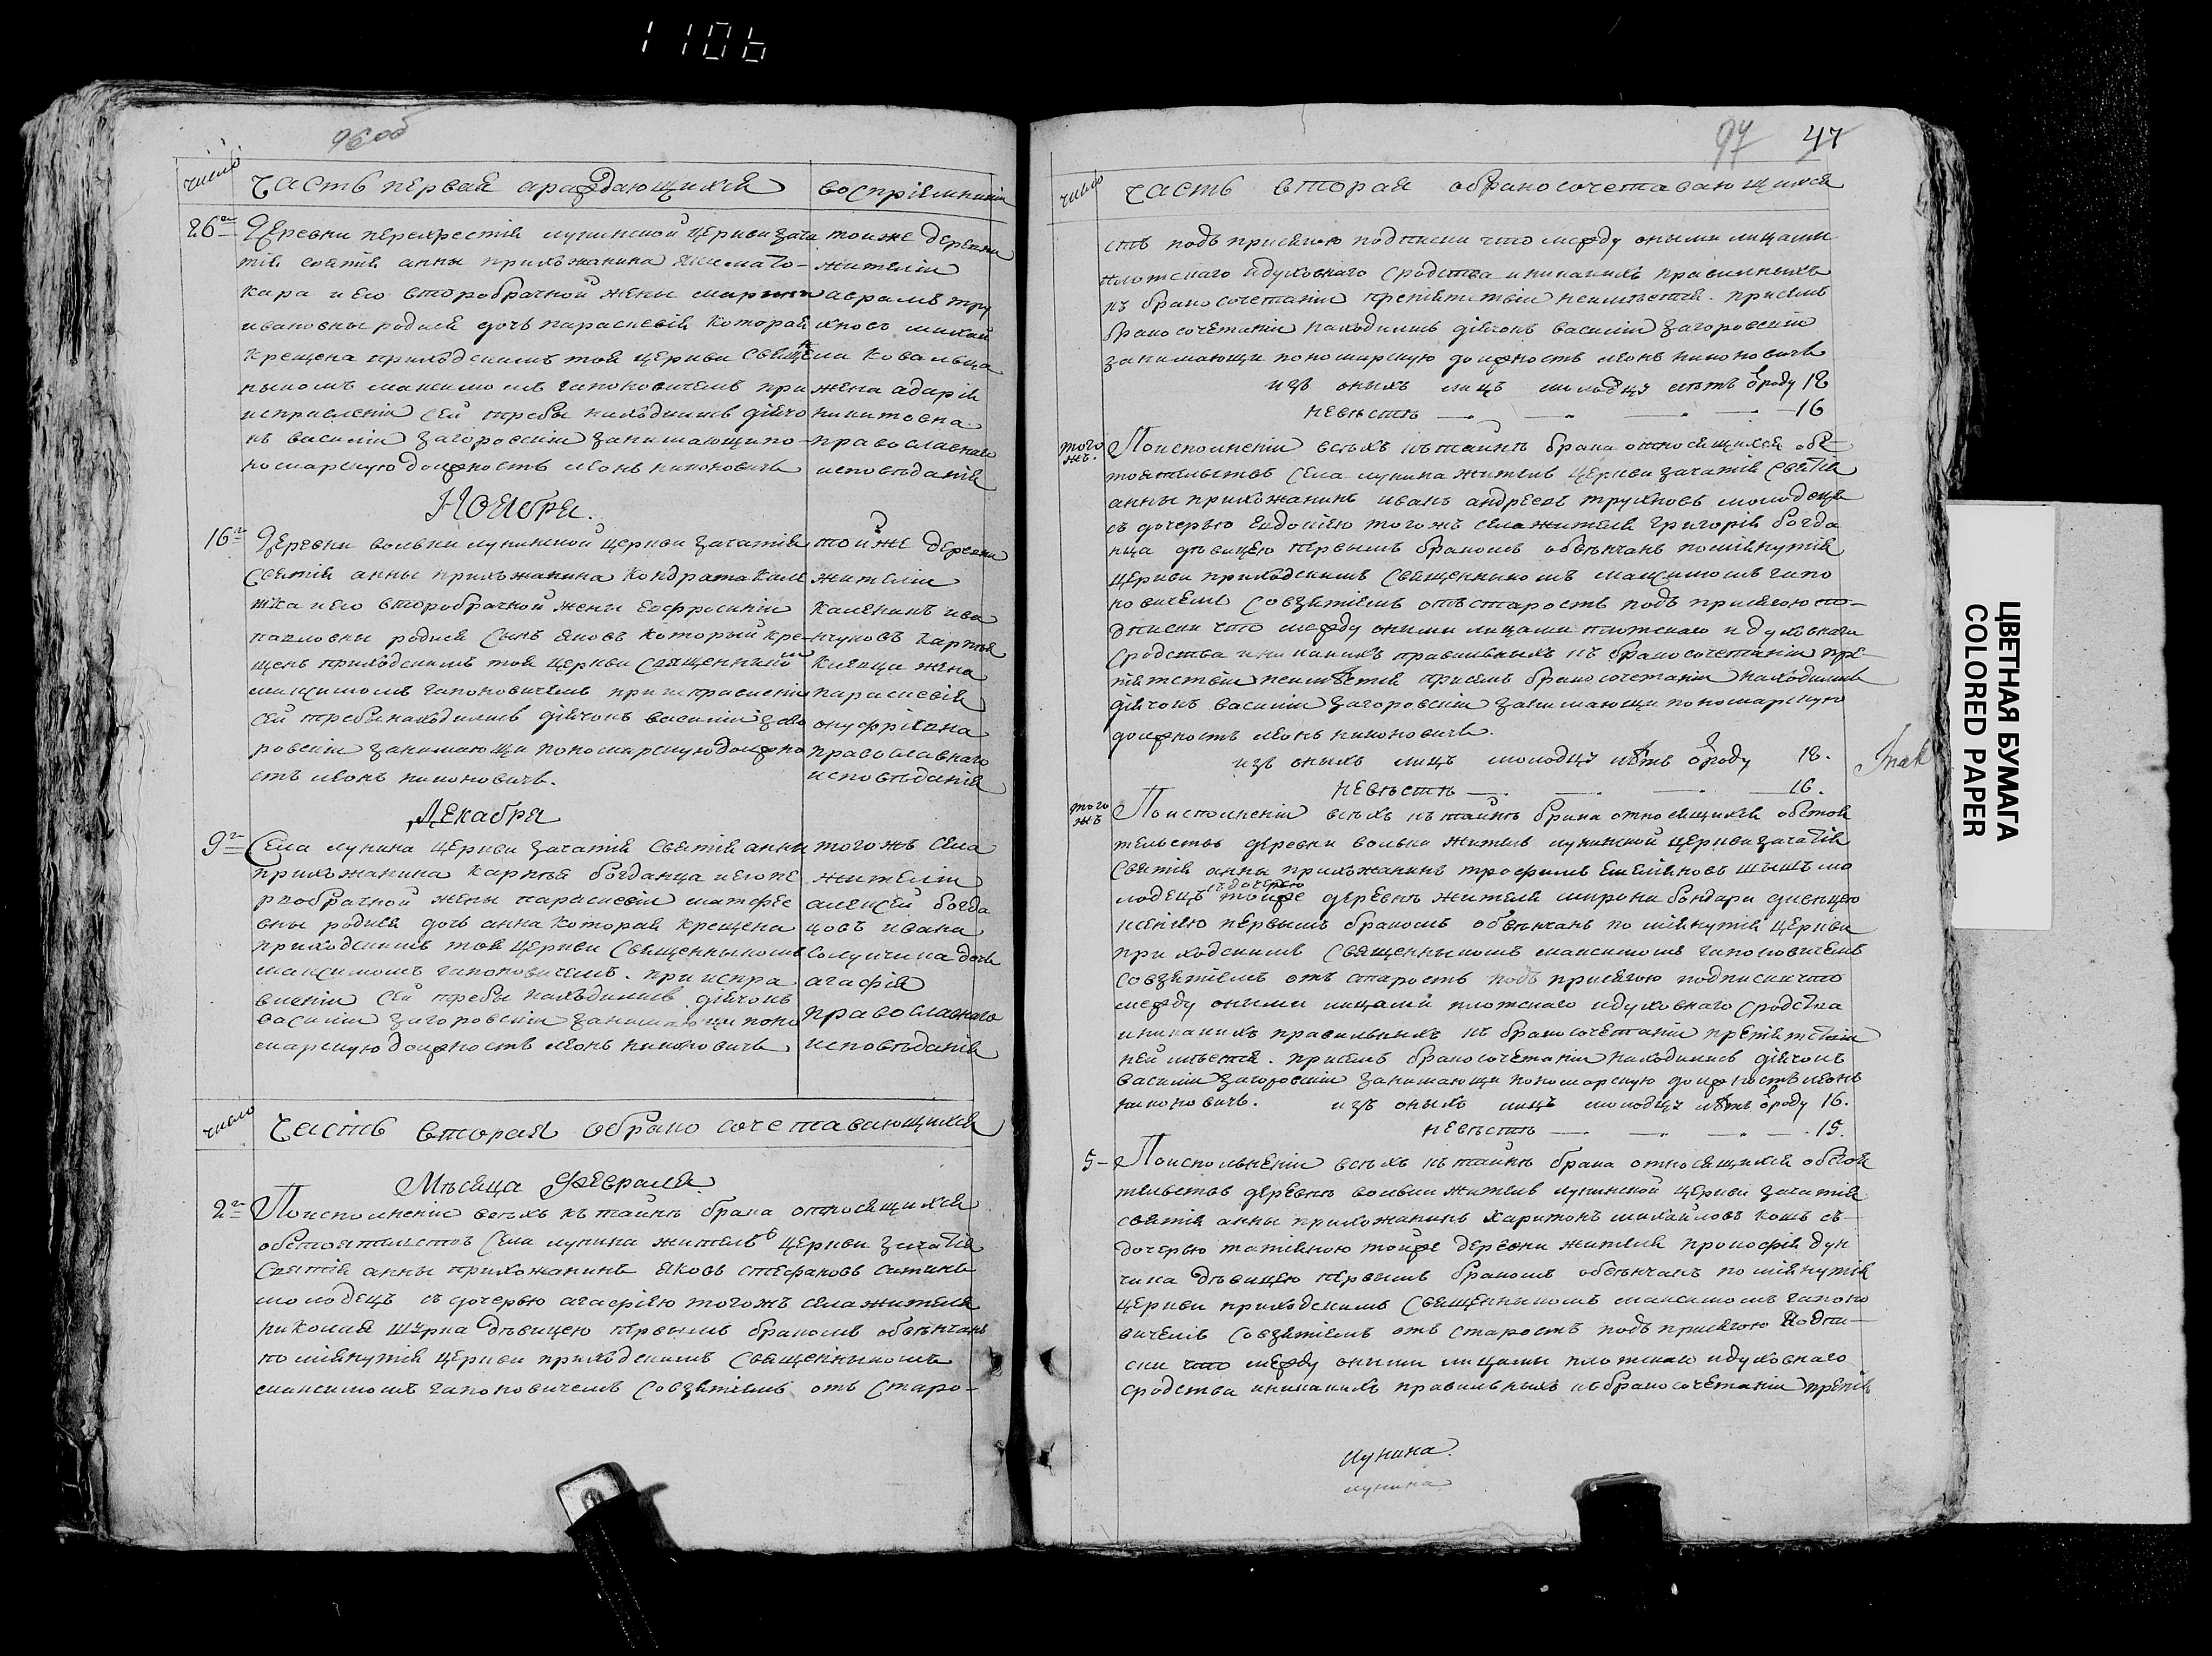 1106
96 об
число
Часть первая араждающихся
воспріемники
26го
Деревни перехрестія лунинской церкви зача
тія святія анны прихожанина
кара и его второбрачной жены марины
ивановны родися дочь параскевія которая
крещена приходскимъ той церкви священ
никомъ максимомъ гапоновичемъ при
исправленіи сей требы находились діячо
къ василій загоровскій занимающи по
номарскую должность леонъ никоновичъ
тоиже деревни
жители
аврамъ тру
хновъ
ковальца
жена
никитовна
православнаго
исповѣданія
Ноября.
16го
Деревни вольки лунинской церкви зачатія
святія анны прихожанина кондрата
и его второбрачной жены евфросиніи
павловны родися сынъ яковъ который кре-
щенъ приходскимъ той церкви священникомъ
максимомъ гапоновичемъ при исправленіи
сей требы находились діячокъ василій заго
ровскій занимающи пономарскую должно
сть леонъ никоновичъ.
тойже деревни
жители
ива
карпа
жена
параскевія
онуфріевна
православнаго
исповѣданія
Декабря
9го
Села лунина церкви зачатія святія анны
прихожанина карпа богданца и его пе
рвобрачной жены параскевіи матфее
вны родися дочь анна которая крещена
приходскимъ той церкви священникомъ
максимомъ гапоновичемъ. при испра
вленіи сей требы находились діячокъ
василій загоровскій занимающи поно
марскую должность леонъ никоновичъ
тогожъ села
жители
алексей богда
цовъ ивана
дочь
агафія
православнаго
исповѣданія
число
Часть вторая обрако сочетавающихся
Мѣсяца Февраля.
2го
Поисполнение всѣхъ къ тайнѣ брака относящихся
обстоятельствъ села лунина житель церкви зачатія
святія анны прихожанинъ яковъ стефановъ
молодецъ съ дочерью агафіею тогожъ села жителя
николая девицею первымъ бракомъ обвѣнчанъ
помянутія церкви приходскимъ священникомъ
максимомъ гапоновичемъ совзятіемъ отъ старо-
97 47
число
часть вторая обракосочетавающихся
стъ подъ присягою подписки что между оными лицами
плотскаго идуховнаго сродства иникакихъ правильныхъ
къ бракосочетанію препятствій неимѣется. присемъ
бракосочетаніи находились діячокъ василій загоровскій
занимающи пономарскую должность леонъ никоновичъ
изъ оныхъ лицъ молодцу лѣтъ ѿроду 18
невѣстѣ — — — 16
того жъ.
Поисполненіи всѣхъ къ тайнѣ брака относящихся обс
тоятельствъ села лунина житель церкви зачатія святія
анны прихожанинъ иванъ андреевъ трухновъ молодецъ
съ дочерью евдокіею тогожъ села жителя григорія богда
нца девицею первымъ бракомъ обвѣнчанъ помянутія
церкви приходскимъ священникомъ максимомъ гапо
новичемъ совзятіемъ отъ старостъ подъ присягою по-
дписки что между оными лицами плотскаго идуховнаго
сродства иникакихъ правильныхъ къ бракосочетанію пре
пятствій неимѣется присемъ бракосочетаніи находились
діячокъ василій загоровскій занимающи пономарскую
должность леонъ никоновичъ.
изъ оныхъ лицъ молодцу лѣтъ ѿроду 18.
невѣстѣ — — — 16.
того жъ
Поисполненіи всѣхъ къ тайнѣ брака относящихся обстоя
тельствъ деревни вольки житель лунинской церкви зачатія
святія анны прихожанинъ трофимъ емеляновъ мо
лодецъ съ дочерью тойже деревнѣ жителя мирона бондаря девицею
ксеніею первымъ бракомъ обвѣнчанъ помянутія церкви
приходскимъ священникомъ максимомъ гапоновичемъ
совзятіемъ отъ старостъ подъ присягою подписки что
между оными лицами плотскаго идуховнаго сродства
иникакихъ правильныхъ къ бракосочетанію препятствій
неимѣется. присемъ бракосочетаніи находились діячокъ
василій загоровскій занимающи пономарскую должность леонъ
никоновичъ. изъ оныхъ лицъ молодцу лѣтъ ѿроду 16.
невѣстѣ — — — 15.
5
Поисполненіи всѣхъ къ тайнѣ брака относящихся обстоя
тельствъ деревнѣ вольки житель лунинской церкви зачатія
святія анны прихожанинъ харитонъ михайловъ кошъ съ
дочерью татіяною тойже деревни жителя прокофія дун
чика девицею первымъ бракомъ обвѣнчанъ помянутія
церкви приходскимъ священникомъ максимомъ гапоно
вичемъ совзятіемъ отъ старостъ подъ присягою подпи-
ски что между оными лицами плотскаго идуховнаго
сродства иникакихъ правильныхъ къ бракосочетанію препя
Лунина.
лунина
ЦВЕТНАЯ БУМАГА
COLORED PAPER